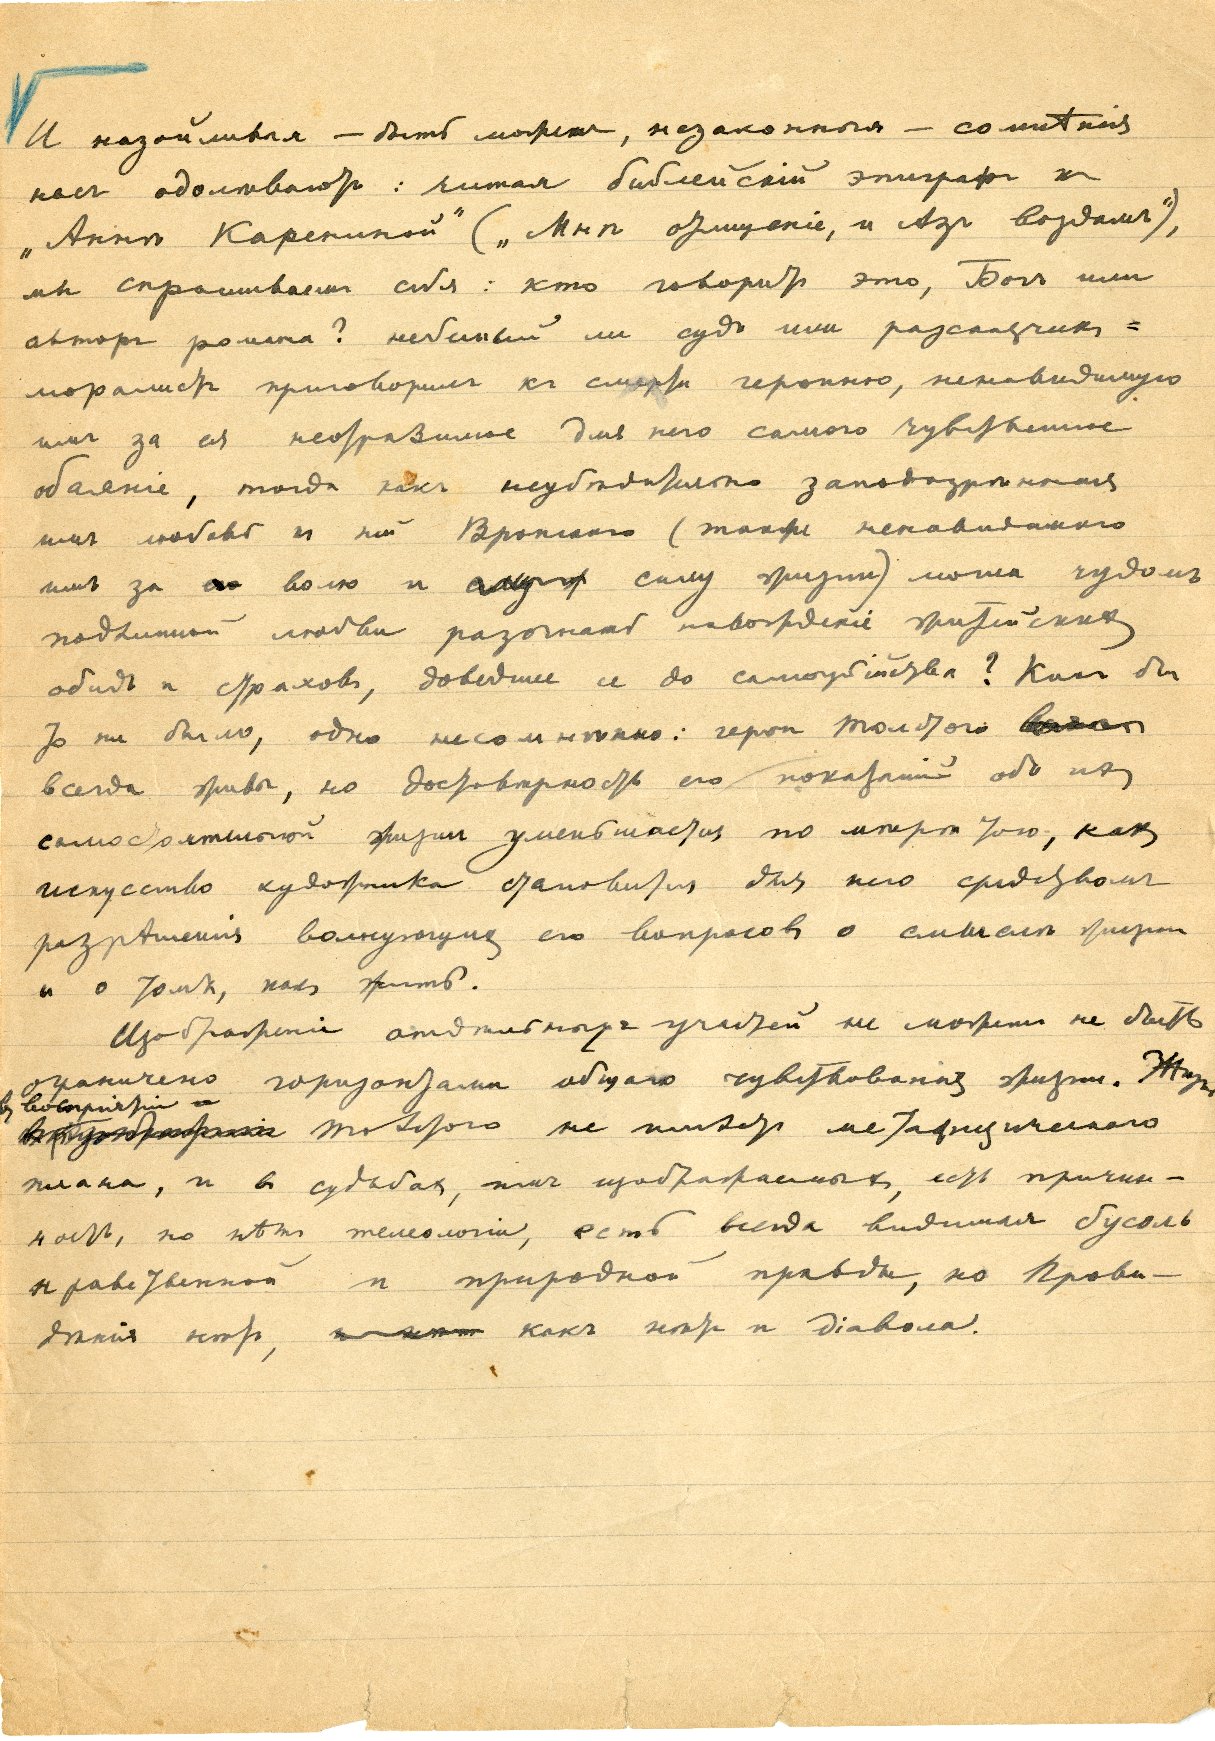 И назойливыя – быть можетъ, незаконныя – сомнѣнія
насъ одолѣваютъ: читая библейскій эпиграфъ къ
„Аннѣ Карениной“ („Мнѣ отмщеніе, и Азъ воздамъ“),
мы спрашиваемъ себя: кто говоритъ это, Богъ или
авторъ романа? небесный ли судъ или разсказчикъ =
моралистъ приговорилъ къ смерти героиню, ненавидимую
имъ за ея неотразимое для него самого чувственное
обаяніе, тогда какъ неубѣдительно заподозрѣнная
имъ любовь къ ней Вронскаго (также ненавидимаго
имъ за волю и силу жизни) могла чудомъ
подлинной любви разогнать навожденіе житейскихъ
обидъ и страховъ, доведшее ее до самоубійства? Какъ бы
то ни было, одно несомнѣнно: герои Толстого
всегда живы, но достовѣрность его показаній объ ихъ
самостоятельной жизни уменьшается по мѣрѣ того, какъ
искусство художника становится для него средствомъ
разрѣшенія волнующихъ его вопросовъ о смыслѣ жизни
и о томъ, какъ жить.
Изображеніе отдѣльныхъ участей не можетъ не быть
ограничено горизонтами общаго чувствованія жизни. Жизнь
въ воспріятіи
Толстого не имѣетъ метафизическаго
плана, и въ судьбахъ, имъ изображаемыхъ, есть причин-
ность, но нѣтъ телеологіи, есть всегда видимая бусоль
нравственной и природной правды, но Прови-
дѣнія нѣтъ, какъ нѣтъ и діавола.